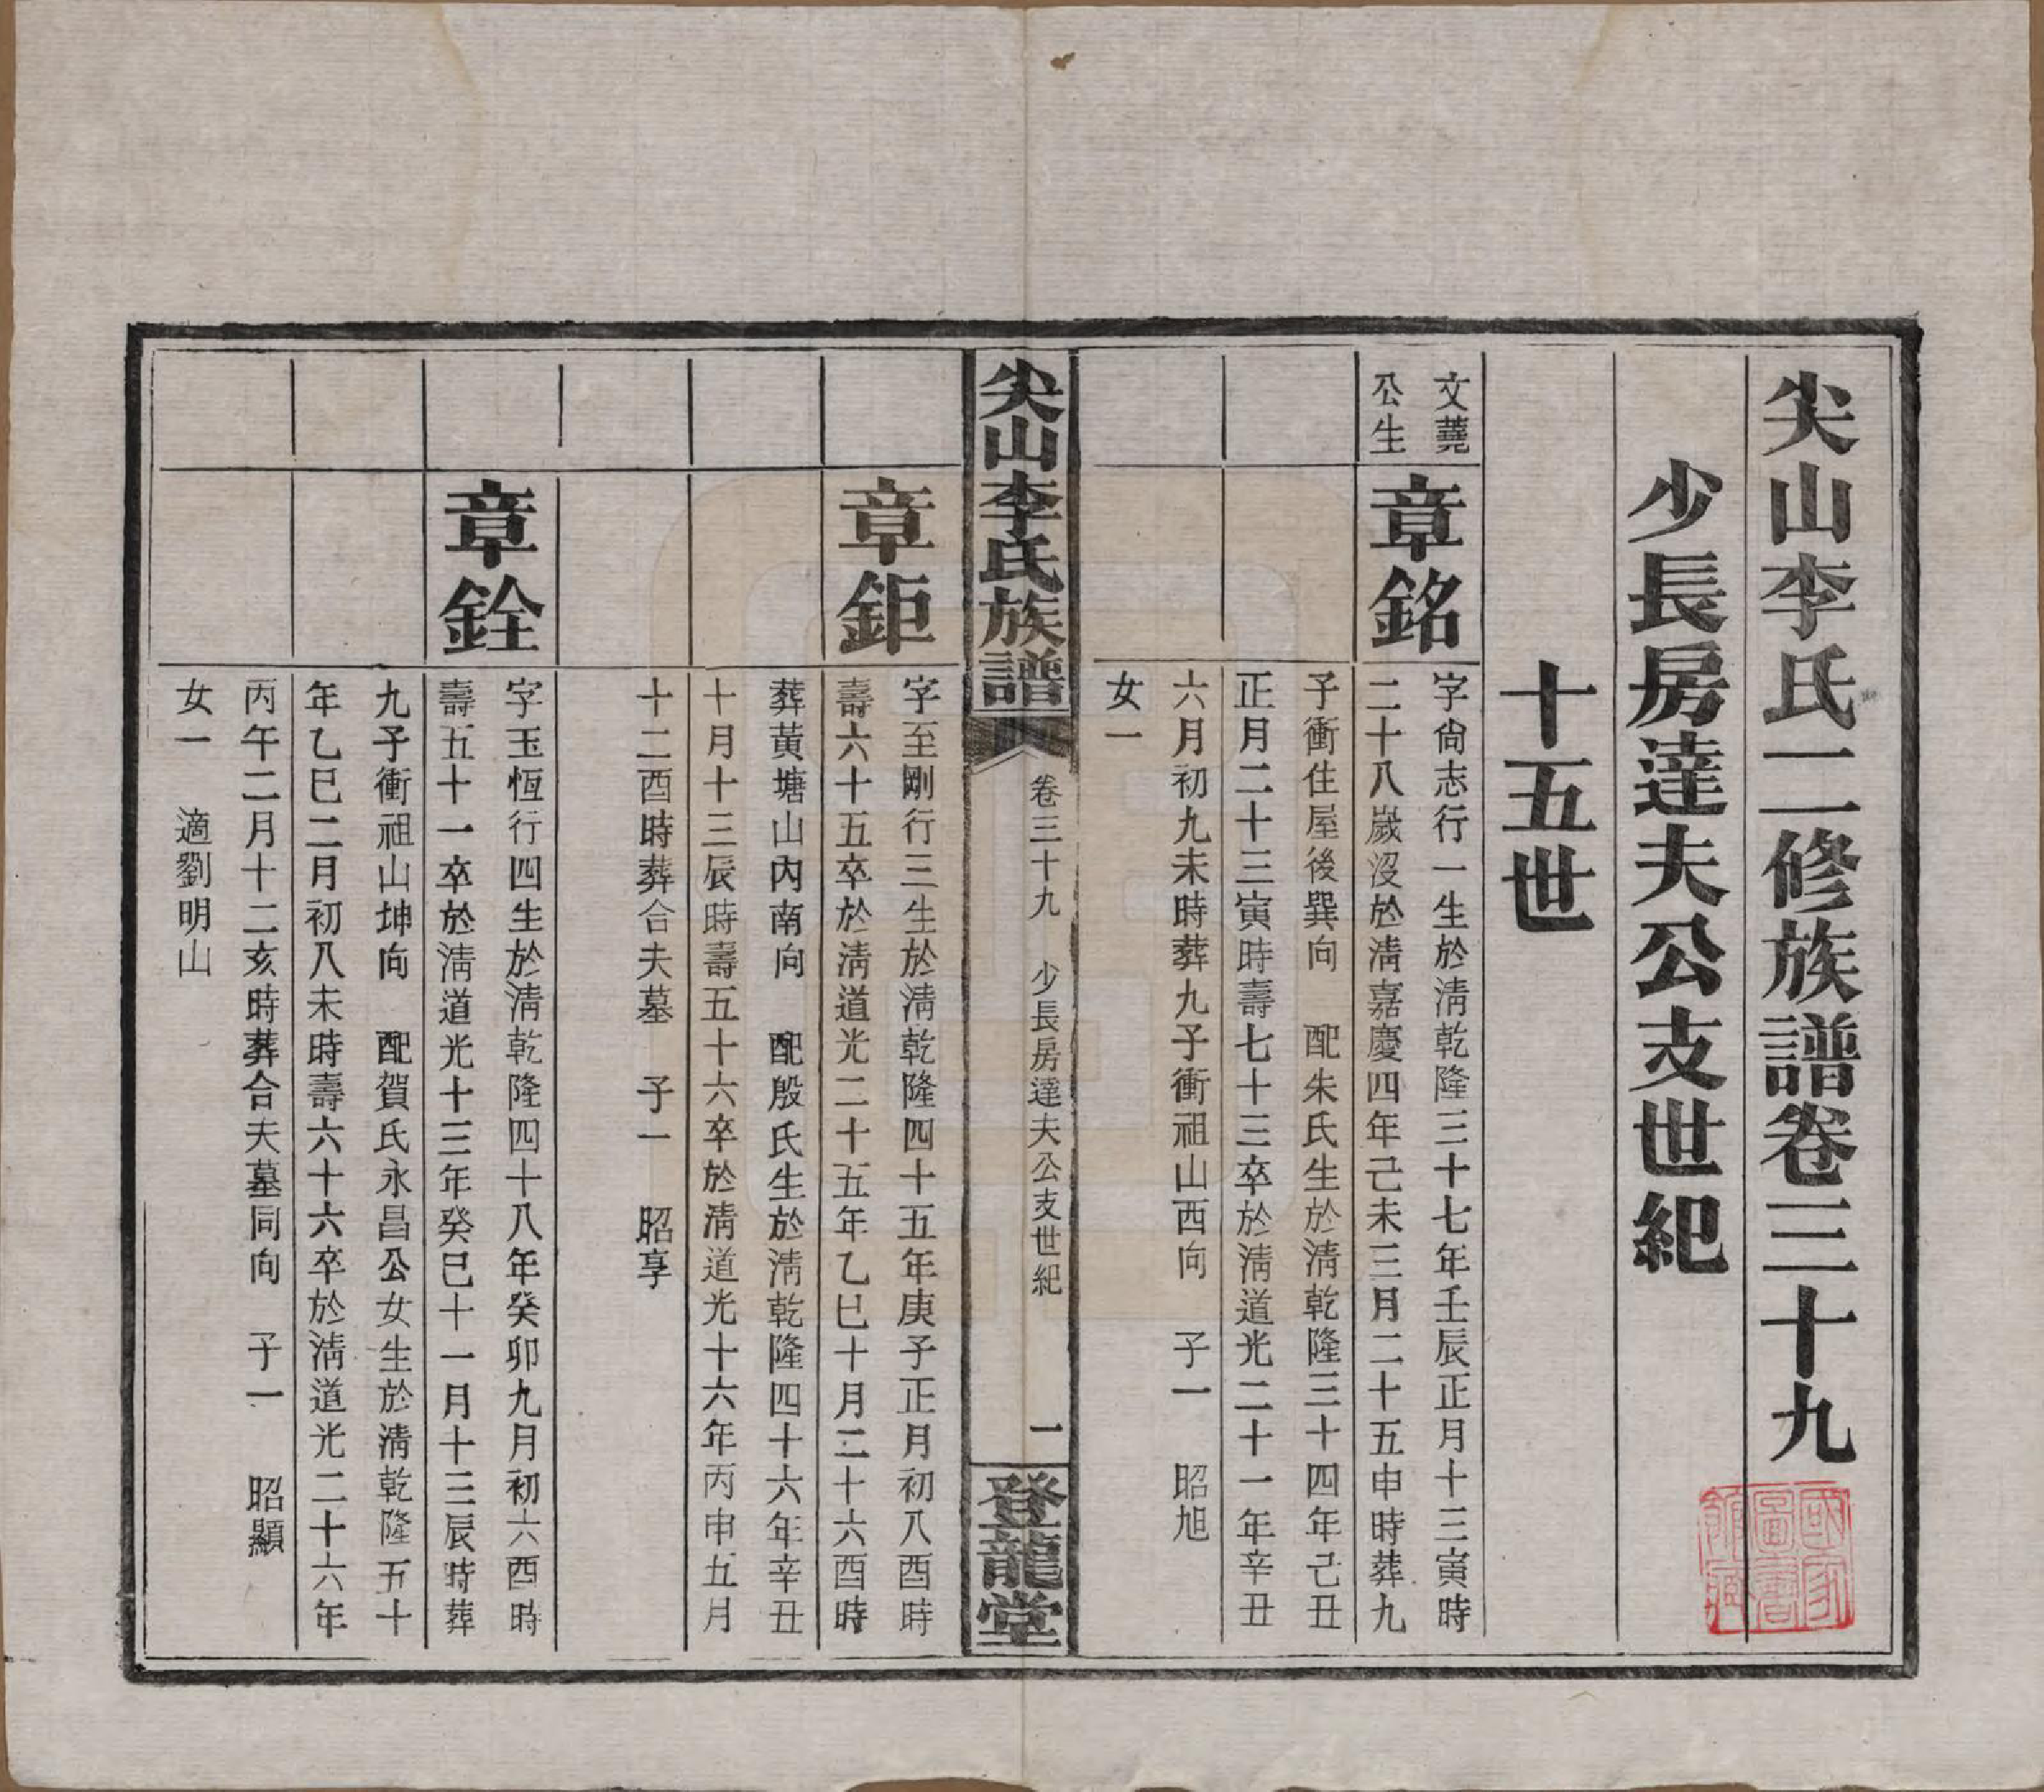 尖山李氏二修族譜卷三十九
少長房達夫公支世紀
十五世
文蕘
公生
章銘
字尙志行一生於淸乾隆三十七年壬辰正月十三寅時
二十八歲沒於淸嘉慶四年己未三月二十五申時葬九
子衝住屋後巽向　配朱氏生於淸乾隆三十四年己丑
正月二十三寅時壽七十三卒於淸道光二十一年辛丑
六月初九未時葬九子衝祖山西向　子一　昭旭
女一
尖山李氏族譜
卷三十九　少長房達夫公支世紀
一
登龍堂
章鉅
字至剛行三生於淸乾隆四十五年庚子正月初八酉時
壽六十五卒於淸道光二十五年乙巳十月二十六酉時
葬黃塘山內南向　配殷氏生於淸乾隆四十六年辛丑
十月十三辰時壽五十六卒於淸道光十六年丙申五月
十二酉時葬合夫墓　子一　昭享
章銓
字玉恆行四生於淸乾隆四十八年癸卯九月初六酉時
壽五十一卒於淸道光十三年癸巳十一月十三辰時葬
九子衝祖山坤向　配賀氏永昌公女生於淸乾隆五十
年乙巳二月初八未時壽六十六卒於淸道光二十六年
丙午二月十二亥時葬合夫墓同向　子一　昭顯
女一　適劉明山
國家
圖書
館藏